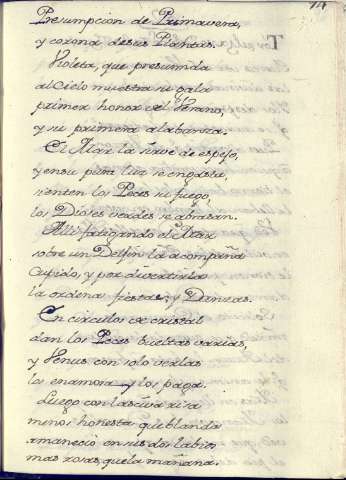 14
Presumpcion de Primavera,
y corona desus Plantas.
Violeta, que presumida
al Cielo muestra su gala
primer honor del Verano,
y su primera alabanza.
El Mar la sirve de espejo,
y en su pura luz se engasta,
sienten los Peces su fuego,
los Dioses verdes se abrasan.
Alli fatigando el Mar
sobre un Delfin la acompaña
Cupido, y por divertirla
la ordena fiestas, y Danzas.
En circulos de cristal
dan los Peces bueltas varias,
y Venus con solo verlas
los enamora, y los paga.
Luego con lasciva risa
menos honesta que blanda
amaneció en sus dos labios
mas rosas, quela mañana.